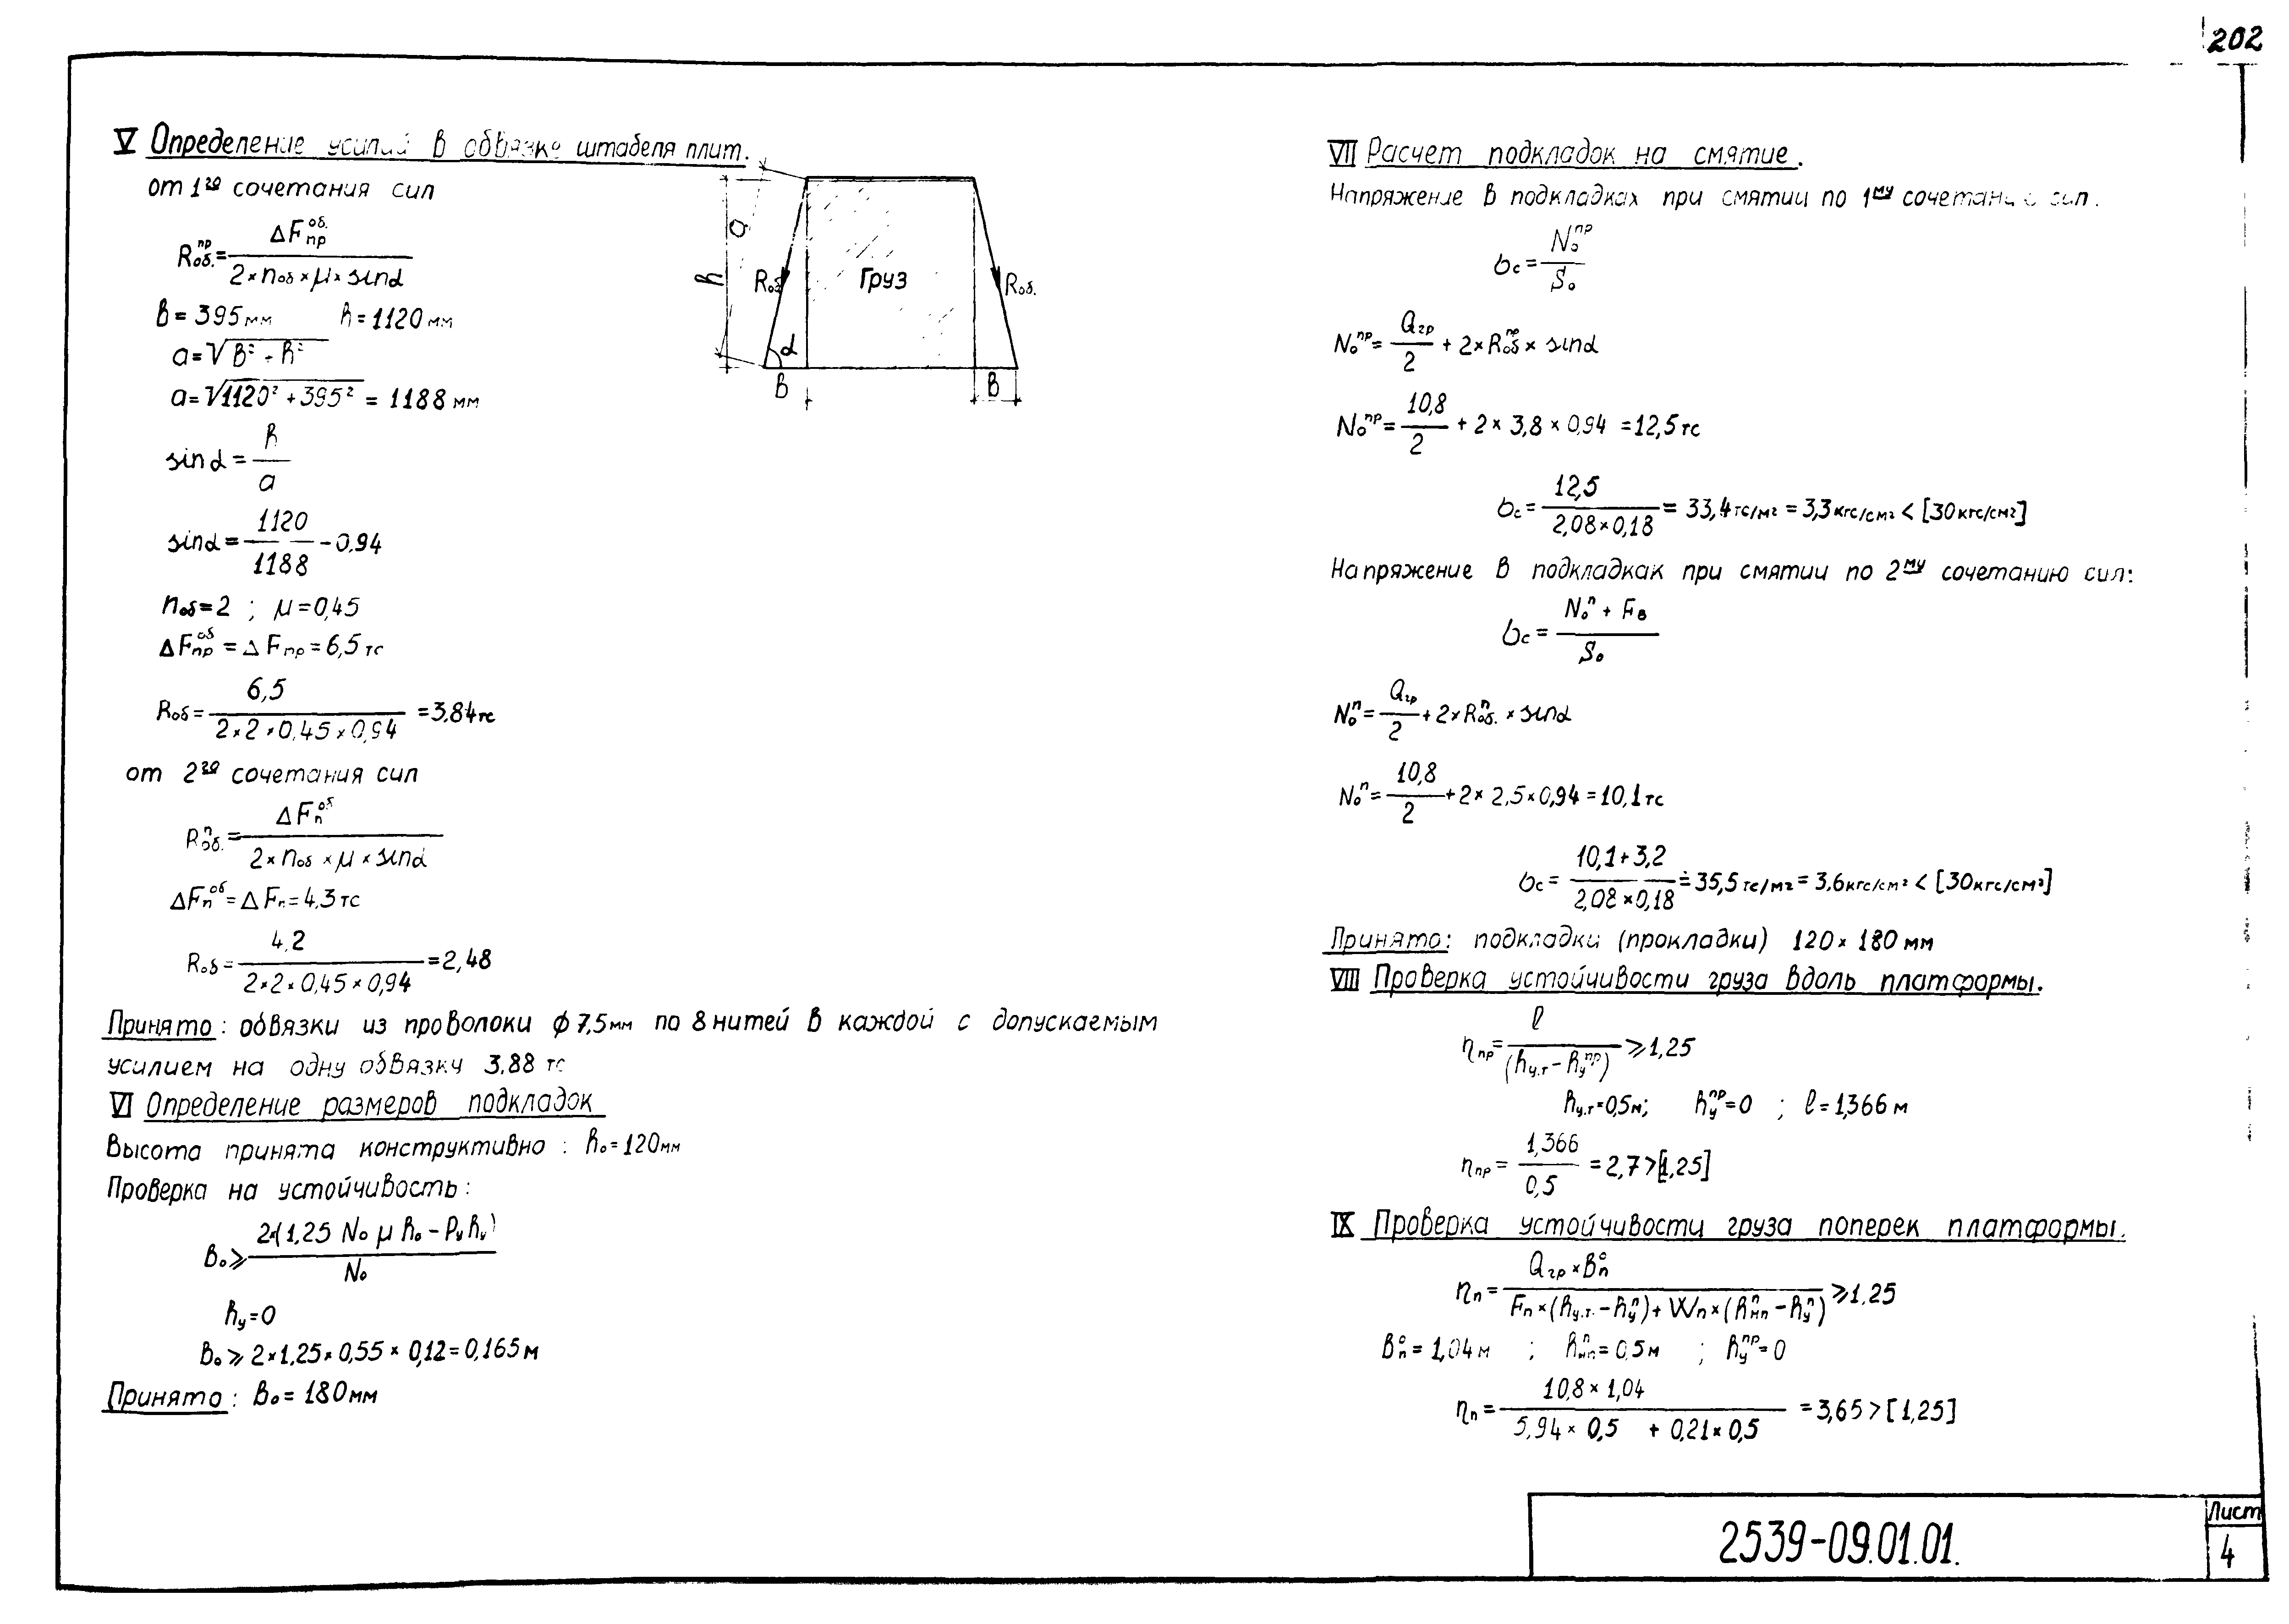 202
V Определение усилий в обвязке штабеля плит.
от 1го сочетания сил
Rоб.пр = ΔFпроб. / 2×nоб×μ×sinα
в = 395мм h = 1120мм
a = √в² + h²
a = √1120² + 395² = 1188 мм
sinα = h / a
sinα = 1120 / 1188 - 0,94
nоб = 2 ; μ = 0,45
ΔFпроб = ΔFпр = 6,5 тс
Rоб = 6,5 / 2×2×0,45×0,94 = 3,84тс
от 2го сочетания сил
Rоб.п = ΔFпоб / 2×nоб×μ×sinα
ΔFпоб = ΔFп = 4,3 тс
Rоб = 4,2 / 2×2×0,45×0,94 = 2,48
Принято: обвязки из проволоки ϕ7,5мм по 8 нитей в каждой с допускаемым
усилием на одну обвязку 3,88 тс
VI Определение размеров подкладок
Высота принята конструктивно : hо = 120мм
Проверка на устойчивость :
Bо ⩾ 2×(1,25 Nо μ hо - Pу hу) / Nо
hу = 0
Bо ⩾ 2×1,25×0,55×0,12 = 0,165м
Принято : Bо = 180мм
a
h
Rоб
Груз
Rоб.
α
в
в
VII Расчет подкладок на смятие.
Напряжение в подкладках при смятии по 1му сочетанию сил.
σс = Nопр / Sо
Nопр = Qгр / 2 + 2×Rобпр × sinα
Nопр = 10,8 / 2 + 2×3,8×0,94 = 12,5 тс
σс = 12,5 / 2,08×0,18 = 33,4 тс/м² = 3,3 кгс/см² < [30 кгс/см²]
Напряжение в подкладкак при смятии по 2му сочетанию сил:
σс = Nоп + Fв / Sо
Nоп = Qгр / 2 + 2×Rоб.п × sinα
Nоп = 10,8 / 2 + 2×2,5×0,94 = 10,1 тс
σс = 10,1 + 3,2 / 2,08×0,18 = 35,5 тс/м² = 3,6 кгс/см² < [30 кгс/см²]
Принято: подкладки (прокладки) 120×180 мм
VIII Проверка устойчивости груза вдоль платформы.
ηпр = l / (hу.т - hупр) ⩾ 1,25
hу.т = 0,5м; hупр = 0 ; l = 1,366 м
ηпр = 1,366 / 0,5 = 2,7 > [1,25]
IX Проверка устойчивости груза поперек платформы.
ηп = Qгр × Bпо / Fп×(hу.т. - hуп) + Wп×(hнпп - hуп) ⩾ 1,25
Bпо = 1,04 м ; hнпп = 0,5м ; hупр = 0
ηп = 10,8×1,04 / 5,94×0,5 + 0,21×0,5 = 3,65 > [1,25]
2539-09.01.01.
Лист
4